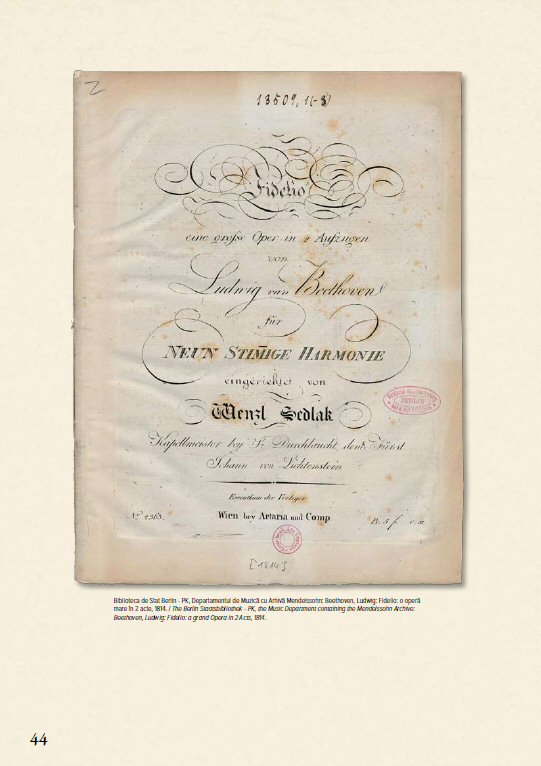 13509, 11-8)
Fidelio
eine große Oper in 2 Aufzügen
von
Ludwig van Beethoven
für
NEUN STIM̅IGE HARMONIE
eingerichtet von
Wenzl Sedlak
Kapellmeister bey Sr. Durchlaucht dem Fürst
Johann von Lichtenstein
Eigenthum der Verleger
No. 2363. Wien bey Artaria und Comp.
BERLIN
[1814]
Biblioteca de Stat Berlin - PK, Departamentul de Muzică cu Arhivă Mendelssohn: Beethoven, Ludwig: Fidelio: o operă
mare în 2 acte, 1814. / The Berlin Staasbibliothek - PK, the Music Department containing the Mendelssohn Archive:
Beethoven, Ludwig: Fidelio: a grand Opera in 2 Acts, 1814.
44